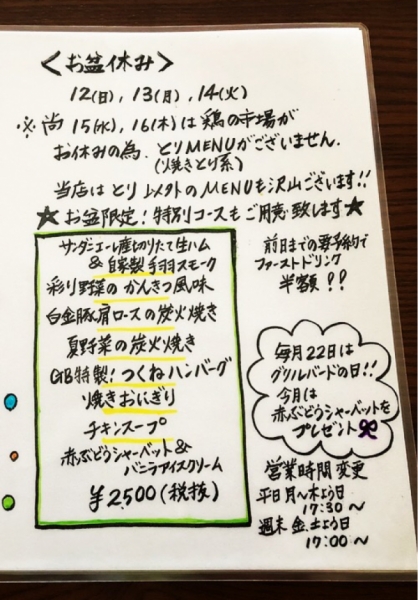 ＜お盆休み＞
12(日)，13(月)，14(火)
※尚 15(水)，16(木)は 鶏の市場が
お休みの為、とりMENUがございません。
(焼きとり系)
当店は とり以外のMENUも沢山ございます!!
★お盆限定！特別コースもご用意致します★
サンダニエーレ産切りたて生ハム
& 自家製手羽スモーク
彩り野菜の かんきつ風味
白金豚肩ロースの炭火焼き
夏野菜の炭火焼き
GB特製！つくねハンバーグ
焼きおにぎり
チキンスープ
赤ぶどうシャーベット&
バニラアイスクリーム
¥2,500(税抜)
前日までの要予約で
ファーストドリンク
半額!!
毎月22日は
グリルバードの日!!
今月は
赤ぶどうシャーベットを
プレゼント
営業時間変更
平日 月〜木よう日
17:30〜
週末 金、土よう日
17:00〜